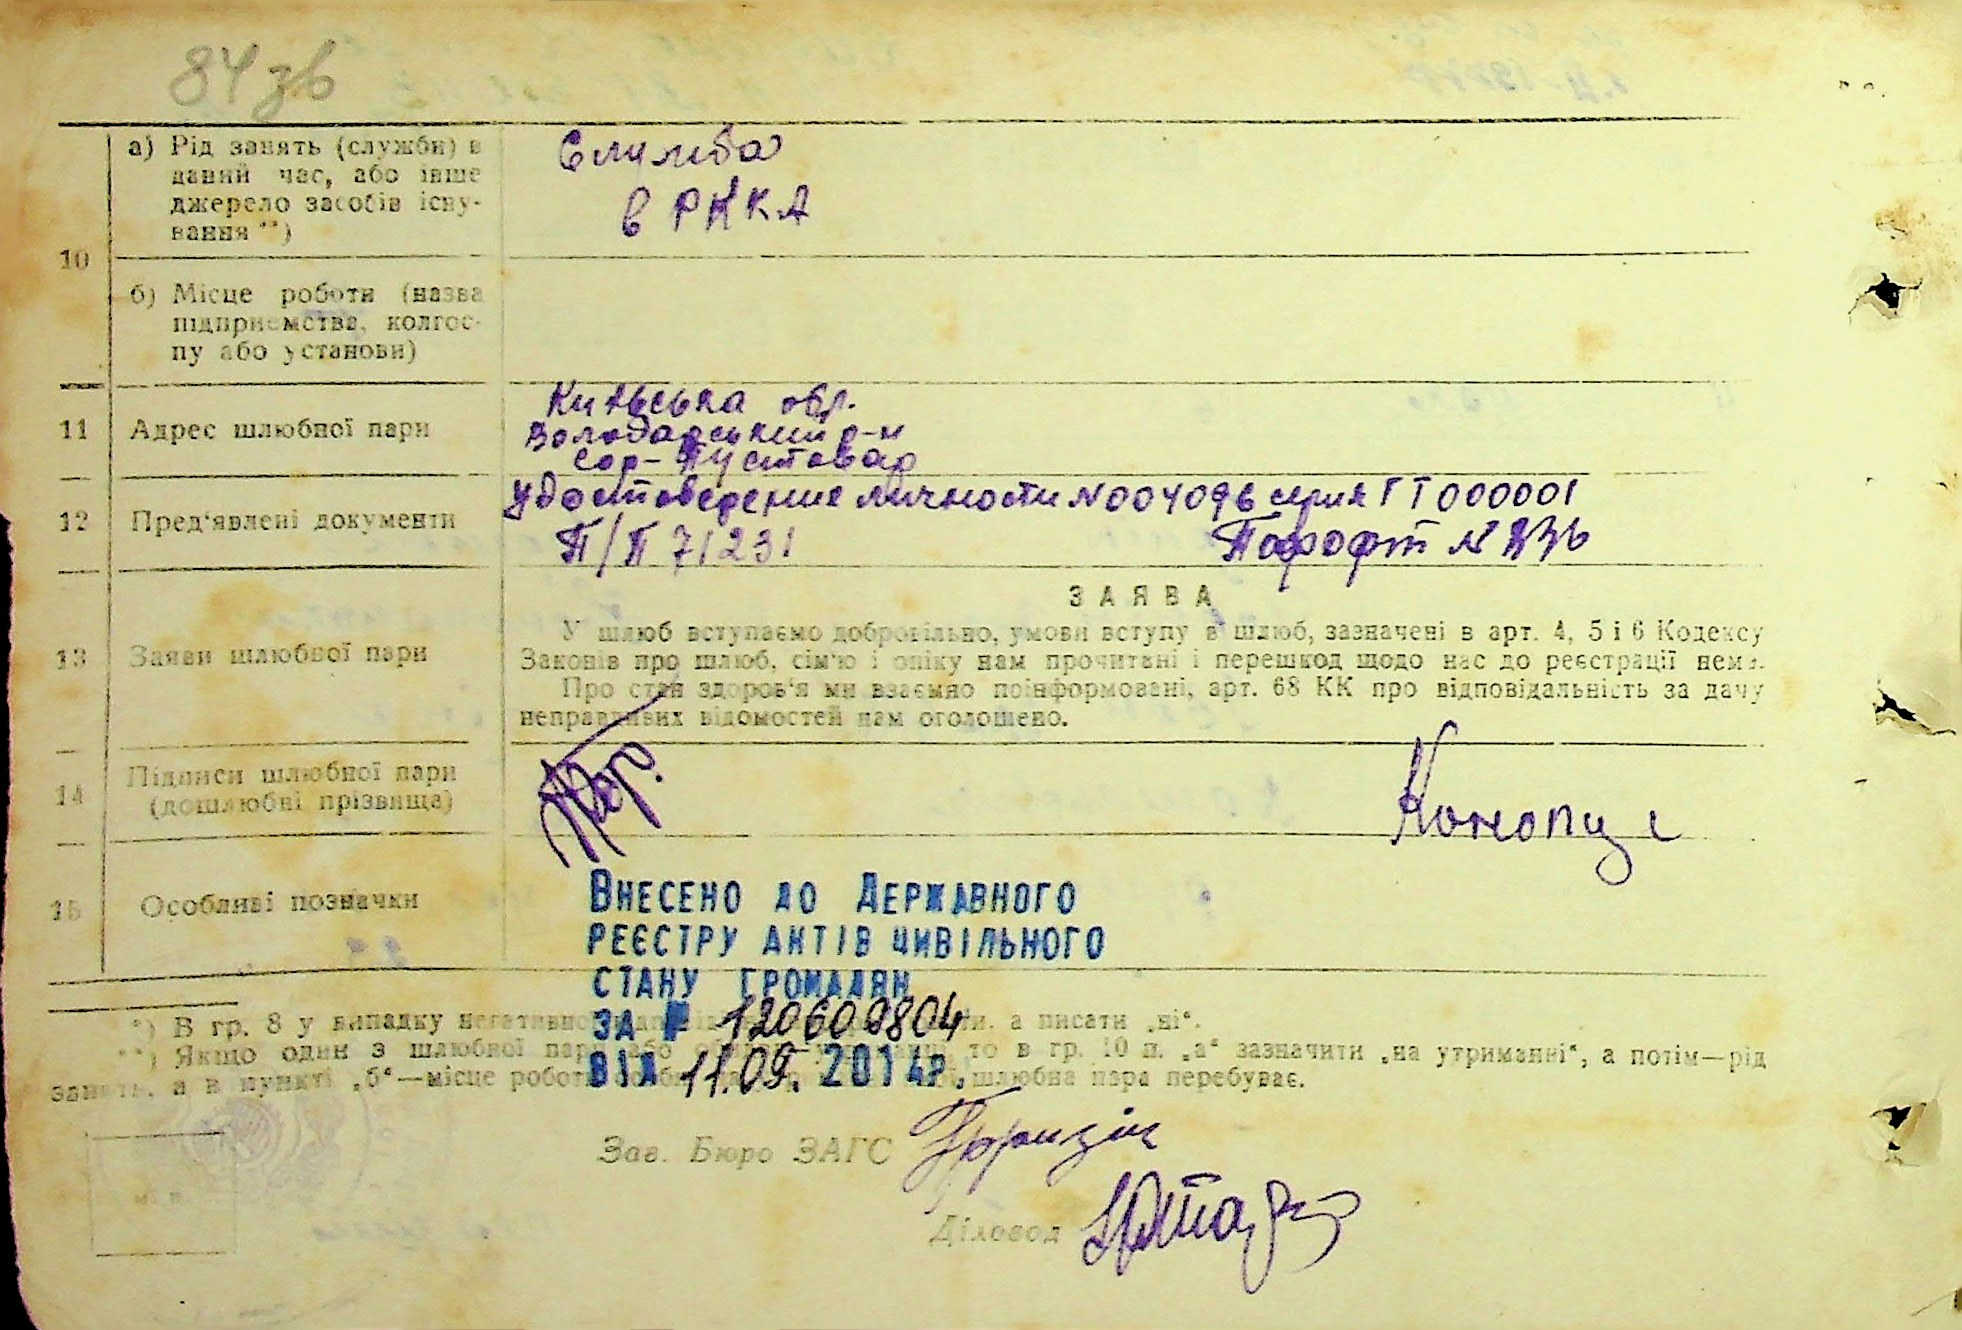 84 зв
а) Рід занять (служби) в
даний час, або інше
джерело засобів існу-
вання **)
Служба
в РККА
10
б) Місце роботи (назва
підприємства, колгос-
пу або установи)
11
Адрес шлюбної пари
Київська обл.
Володарський р-н
сор- Пустовар
12
Пред'явлені документи
Удостоверение личности N 004096 серия ГТ 000001
П/П 71231
13
Заяви шлюбної пари
ЗАЯВА
У шлюб вступаємо добровільно, умови вступу в шлюб, зазначені в арт. 4, 5 і 6 Кодексу
Законів про шлюб, сім'ю і опіку нам прочитані і перешкод щодо нас до реєстрації нема.
Про стан здоров'я ми взаємно поінформовані, арт. 68 КК про відповідальність за дачу
неправдивих відомостей нам оголошено.
14
Підписи шлюбної пари
(дошлюбні прізвища)
15
Особливі позначки
Внесено до Державного
реєстру актів цивільного
стану громадян
за № 120609804
від 11.09. 2014р.
*) В гр. 8 у випадку а писати „ні".
**) Якщо один з шлюбної пари або то в гр. 10 п. „а" зазначити „на утриманні", а потім—рід
занять, а в пункті „б"—місце роботи шлюбна пара перебуває.
Зав. Бюро ЗАГС
Діловод
М. П.